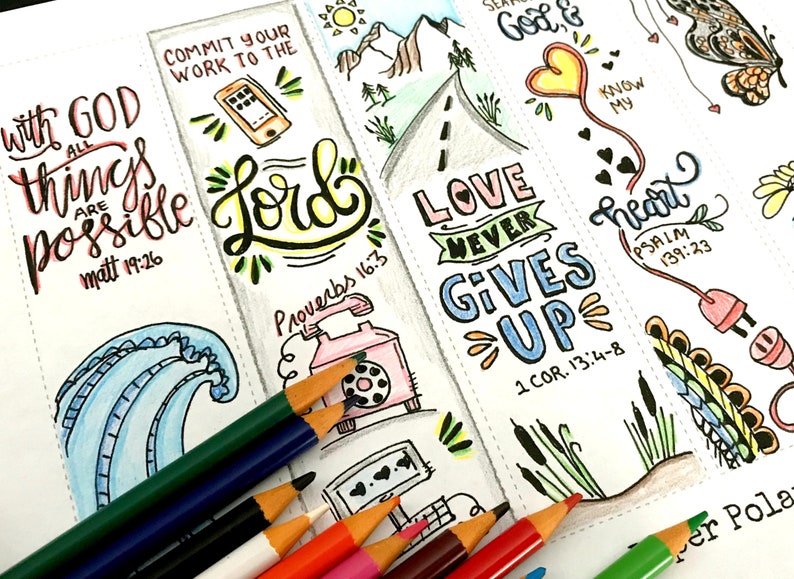 With GOD
ALL
things
ARE
possible
matt 19:26
COMMIT YOUR
WORK TO THE
Lord
Proverbs 16:3
LOVE
NEVER
GIVES
UP
1 COR. 13:4-8
God, &
KNOW
MY
heart
PSALM
139:23